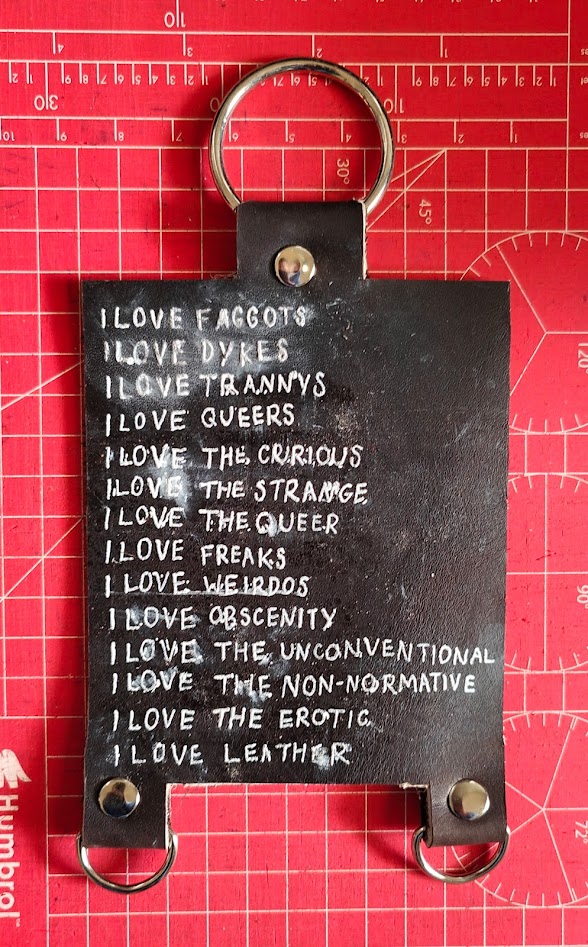 I LOVE FAGGOTS
I LOVE DYKES
I LOVE TRANNYS
I LOVE QUEERS
I LOVE THE CURIOUS
I LOVE THE STRANGE
I LOVE THE QUEER
I LOVE FREAKS
I LOVE WEIRDOS
I LOVE OBSCENITY
I LOVE THE UNCONVENTIONAL
I LOVE THE NON-NORMATIVE
I LOVE THE EROTIC
I LOVE LEATHER
Humbrol
30°
45°
120
90°
72°